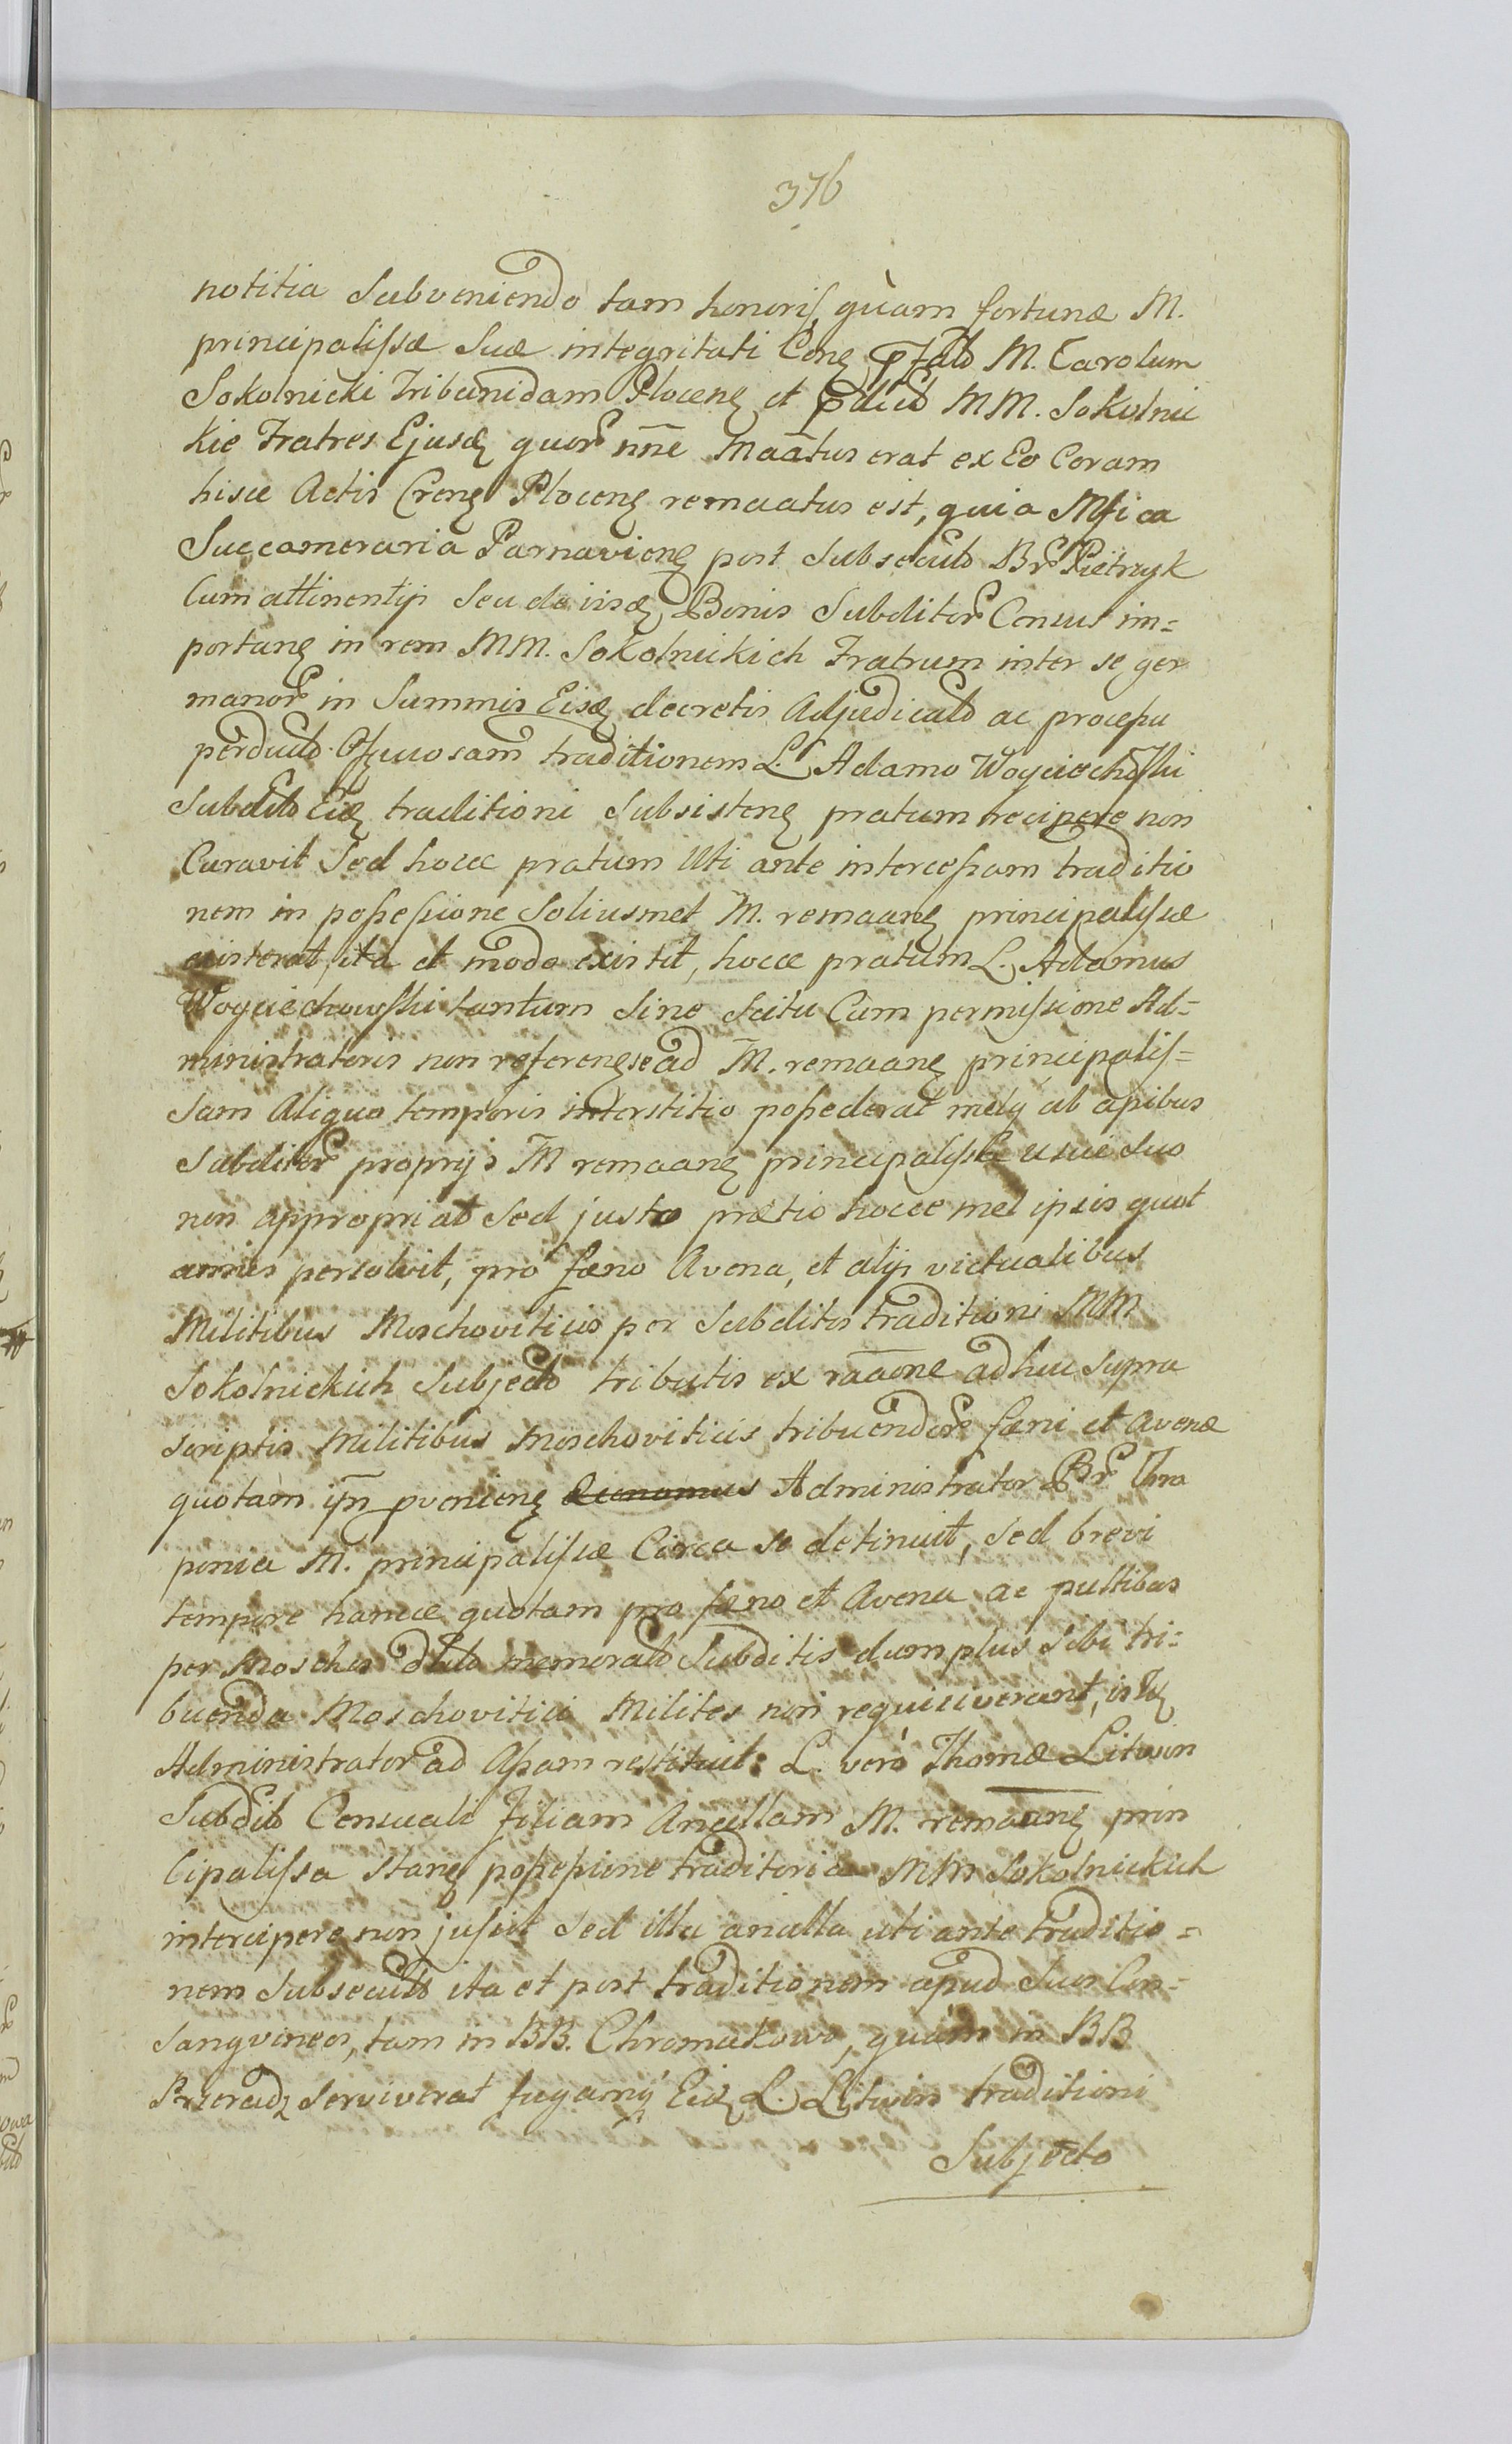 376
notitia Subveniendo tam honoris, quàm fortunæ M.
principalissæ Suæ integritati M. Carolum
Sokolnicki Tribunidam Plocens et MM. Sokolnic
kie Fratres Ejusd quor nne Maatus erat ex Eo Coram
hisce Actis Plocens remaatus est, quia Mfica
Succameraria Parnaviens post Subsecut Br Pietrzyk
Cum attinentijs Seu de iisd Bonis Subditor Census im=
portans in rem MM. Sokolnickich Fratrum inter se ger
manor in Summis Eisd decretis Adjudicat ac processu
perduct Offuosam traditionem L. Adamo Woyciechowski
Subdito Eid traditioni Subsistens pratum recipere non
Curavit Sed hocce pratum Uti ante intercessam traditio
nem in possessione Soliusmet M. remaans principalissæ
existerat, ita et modo existit, hocce pratum L. Adamus
Woyciechowski tantum Sine Scitu Cum permissione Ad=
ministratoris non referens se ad M. remaans principalis=
sam Aliquo temporis interstitio possederat mely ab apibus
Subditor proprijs M remaans principalissæ usui Suo
non appropriat Sed justo prætio hocce mel ipsis quot
annis persolvit, pro fæno Avena, et alijs victualibus
Militibus Moschoviticis per Subditos traditioni MM
Sokolnickich Subjecto tributis ex raaone adhuc Supra
scriptis Militibus Moschoviticis tribuendor fæni et Avenæ
quotam provieniens Administrator Br Chro
ponia M. principalissæ Circa se detinuit, Sed brevi
tempore hancce quotam pro fæno et Avena ac pultibus
per Moschos memorat Subditis dum plus Sibi tri=
buenda Moschovitici Milites non requisiverant,
Administrator ad Assam restituit. L. verò Thomæ Litwin
Subdito Censuali Filiam Ancillam M. remaans prin
cipalissa Stans possessione traditoria MM Sokolnickich
intercipere non jussit Sed illa ancilla uti ante traditio=
nem Subsecut ita et post traditionem apud Suos Con=
sangvineos, tam in BB. Chromakowo, quàm in BB
Przeradz Serviverat fugamq Eid L. Litwin traditioni
Subjecto